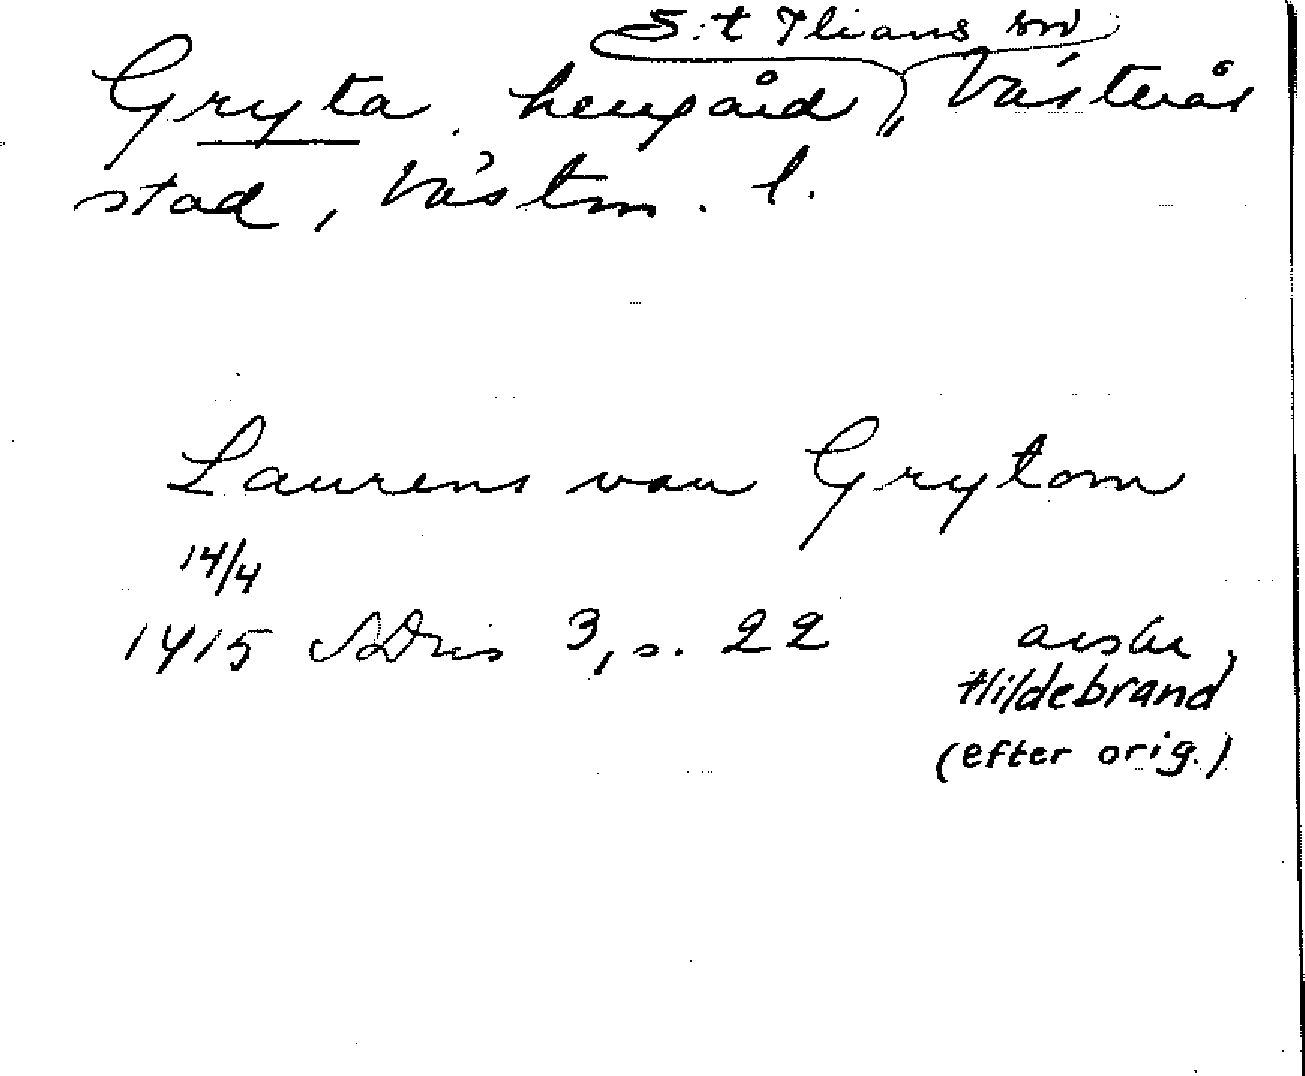 S:t Ilians sn
Gryta, herrgård, Västerås
stad, Västm. l.
Laurens van Grytom
14/4
1415 SDns 3, s. 22
avskr,
Hildebrand
(efter orig.)